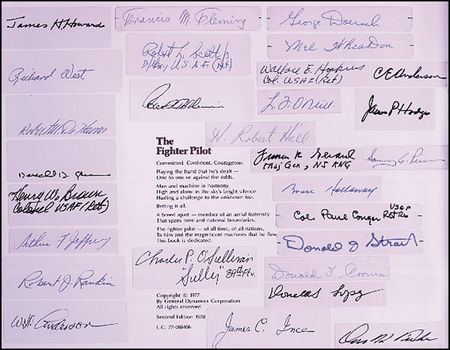 James H Howard
Francis M. Fleming
George Doersch
Robert L Scott Jr
USAF (Ret)
Richard West
Wallace E. Hopkins
Col. USAF (Ret)
C E Anderson
L F O'Neill
James P Hodges
H. Robert Hall
The
Fighter Pilot
Committed. Confident. Courageous.
Playing the hand that he's dealt —
One to one or against the odds.
Man and machine in harmony.
High and alone in the sky's bright silence
Hurling a challenge to the unknown foe.
Betting it all.
A breed apart — member of an aerial fraternity
That spans time and national boundaries.
The fighter pilot — of all time, of all nations,
To him and the magnificent machines that he flew
This book is dedicated.
Francis R. Gerard
Maj Gen, NJ ANG
Henry W. Brown
Colonel USAF (Ret)
Bruce Holloway
Col Paul Conger USAF
Retired
Arthur F Jeffrey
Donald J Strait
Charles P. O'Sullivan
"Sully" 39th Ftr.
Robert J. Rankin
Donald T Cronin
Donald S Lopez
Copyright © 1977
By General Dynamics Corporation
All rights reserved
Second Edition 1978
L.C. 77-088406
Wm Anderson
James C. Ince